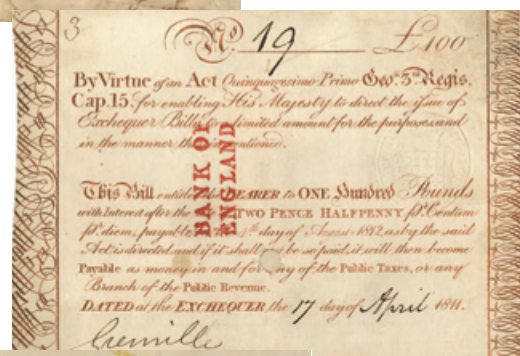 3
No 19 £100
By Virtue of an Act Quinquagesimo Primo Geo: 3.ii Regis,
Cap. 15, for enabling His Majesty to direct the issue of
Exchequer Bills to a limited amount for the purposes and
in the manner therein mentioned.
This Bill entitles the BEARER to ONE Hundred Pounds
with Interest after the TWO PENCE HALFPENNY pr. Centum
pr. diem, payable day of 1812, as by the said
Act is directed, and if it shall not be so paid, it will then become
Payable as money in and for any of the Public Taxes, or any
Branch of the Public Revenue.
DATED at the EXCHEQUER the 17 day of April 1811.
Grenville
BANK OF
ENGLAND